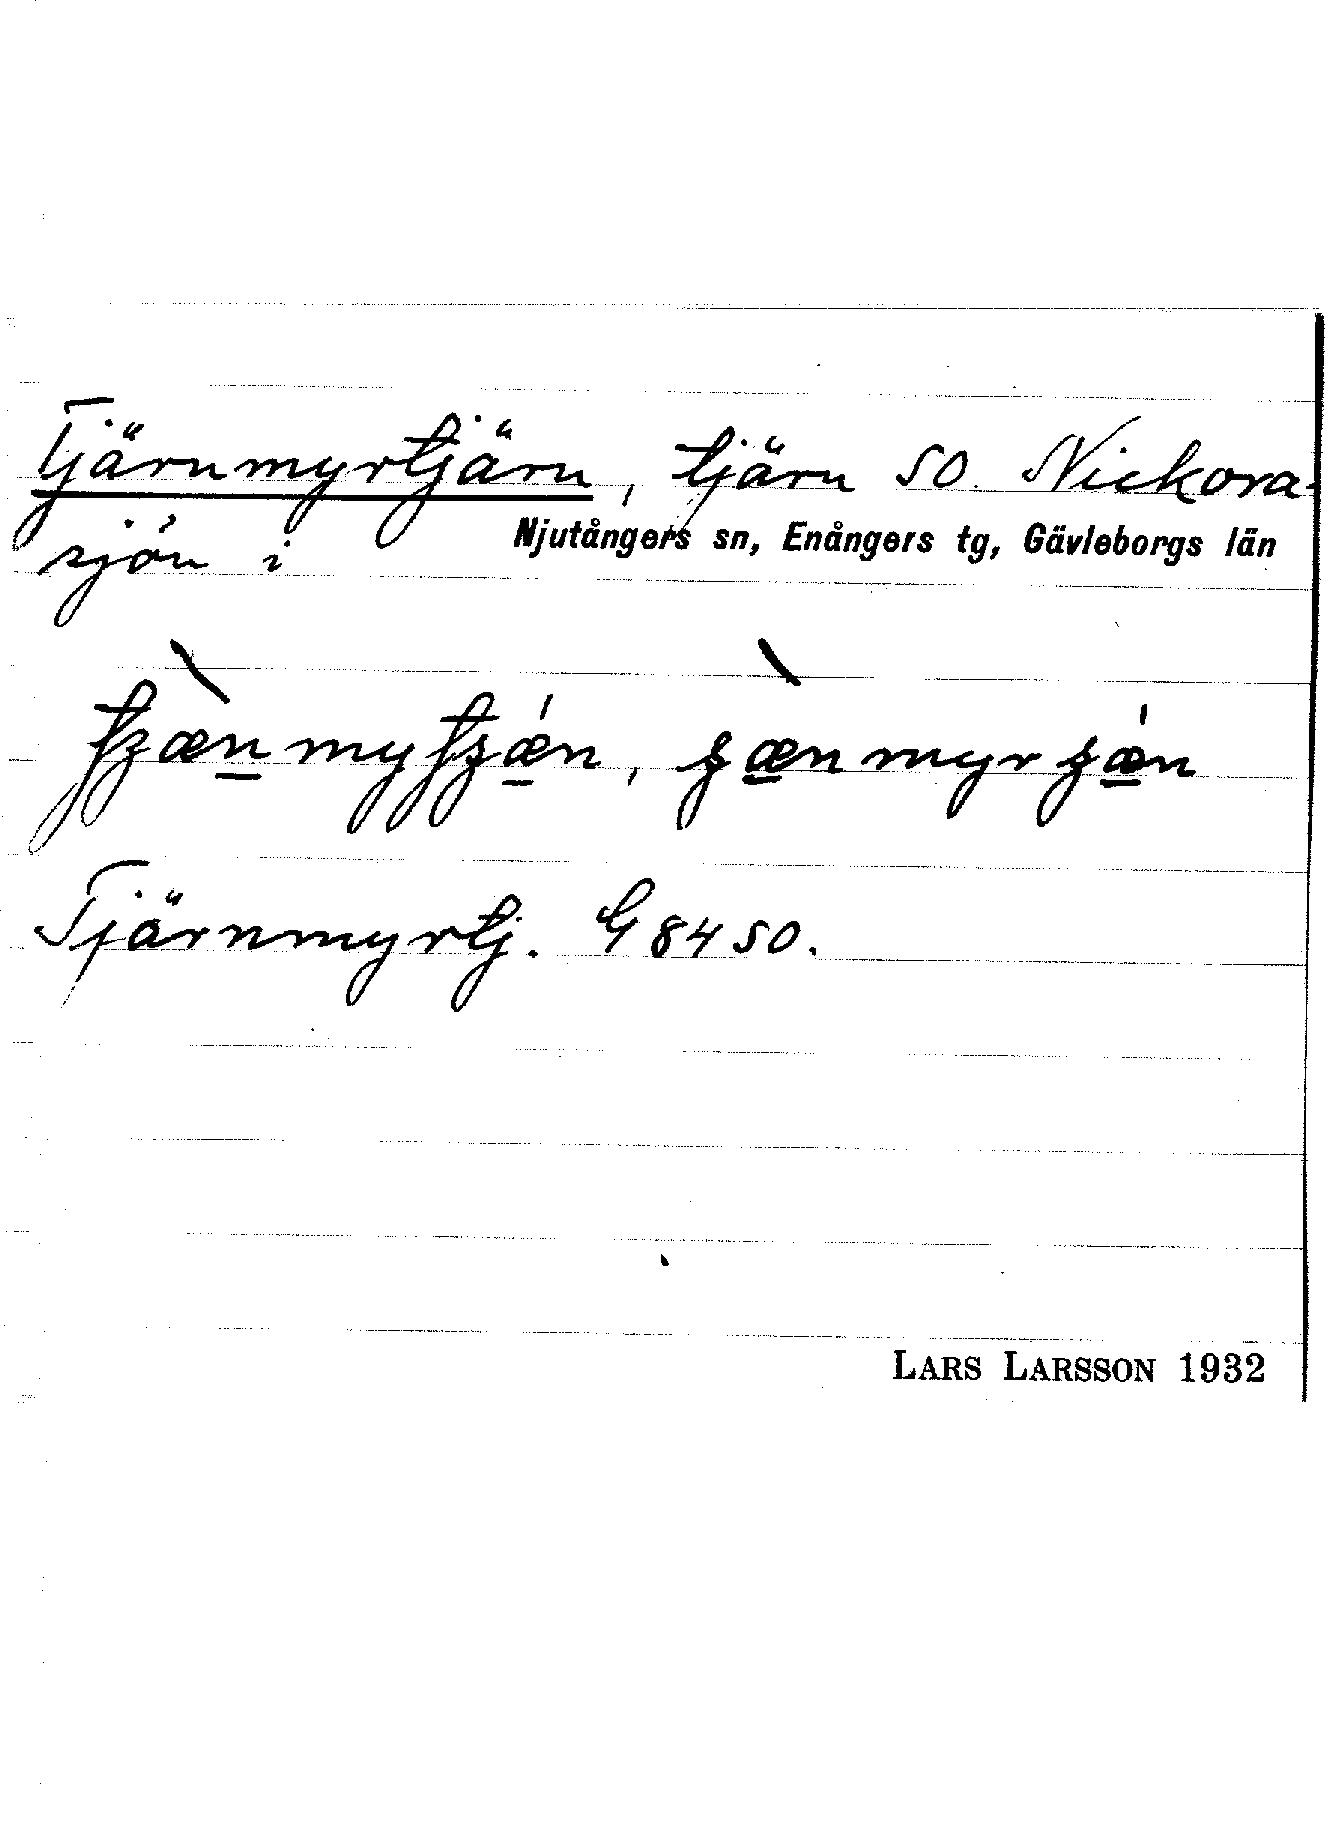 Tjärnmyrtjärn, tjärn SO Nickora-
sjön i Njutångers sn, Enångers tg, Gävleborgs län
Tjärnmyrtj. G 84 SO.
LARS LARSSON 1932